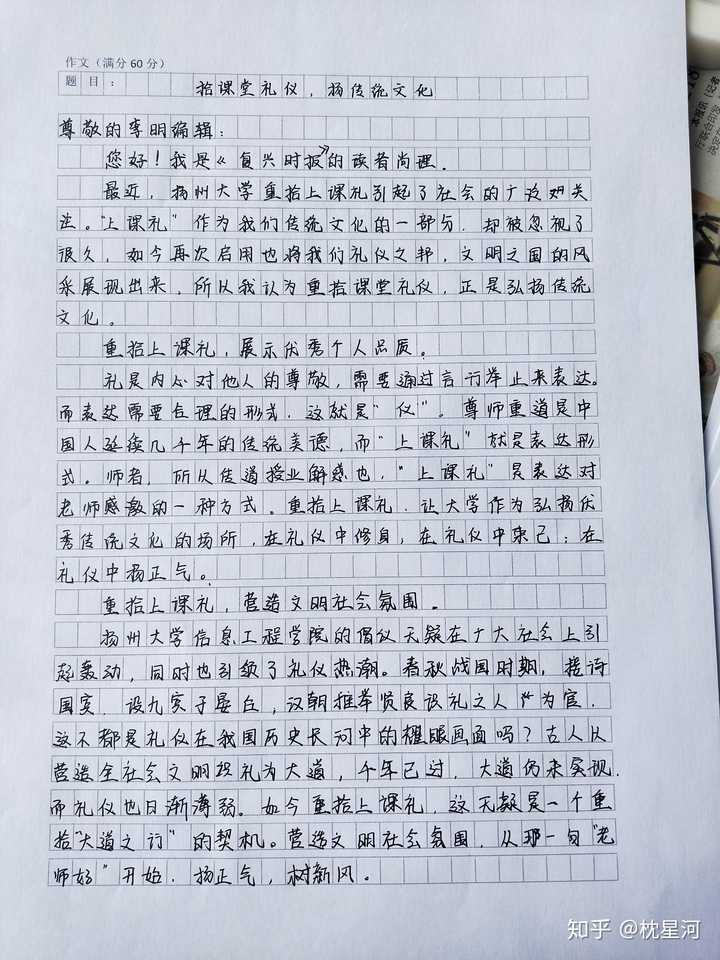 作文（满分 60 分）
题 目： 拾课堂礼仪，扬传统文化
尊敬的李明编辑：
您好！我是《复兴时报》的读者尚理．
最近，扬州大学重拾上课礼引起了社会的广泛州关
注。“上课礼”作为我们传统文化的一部分．却被忽视了
很久，如今再次启用也将我们礼仪之邦，文明之国的风
采展现出来，所以我认为重拾课堂礼仪，正是弘扬传统
文化。
重拾上课礼，展示优秀个人品质。
礼是内心对他人的尊敬，需要通过言行举止来表达。
而表达需要合理的形式．这就是“仪”。尊师重道是中
国人延续几千年的传统美德，而“上课礼”就是表达形
式。师者，所以传道授业解惑也，“上课礼”是表达对
老师感激的一种方式。重拾上课礼．让大学作为弘扬优
秀传统文化的场所，在礼仪中修身，在礼仪中求己；在
礼仪中扬正气。
重拾上课礼，营造文明社会氛围。
扬州大学信息工程学院的倡议无疑在广大社会上引
起轰动，同时也引领了礼仪热潮。春秋战国时期，接诗
国宾．设九宾于晏丘，汉朝推举贤良设礼之人 为官．
这不都是礼仪在我国历史长河中的耀眼画面吗？古人以
营造全社会文明祝礼为大道，千年已过，大道仍未实现．
而礼仪也日渐薄弱。如今重拾上课礼，这无疑是一个重
拾“大道之行”的契机。营造文明社会氛围，从那一句“老
师好”开始．扬正气，树新风。
知乎 @枕星河